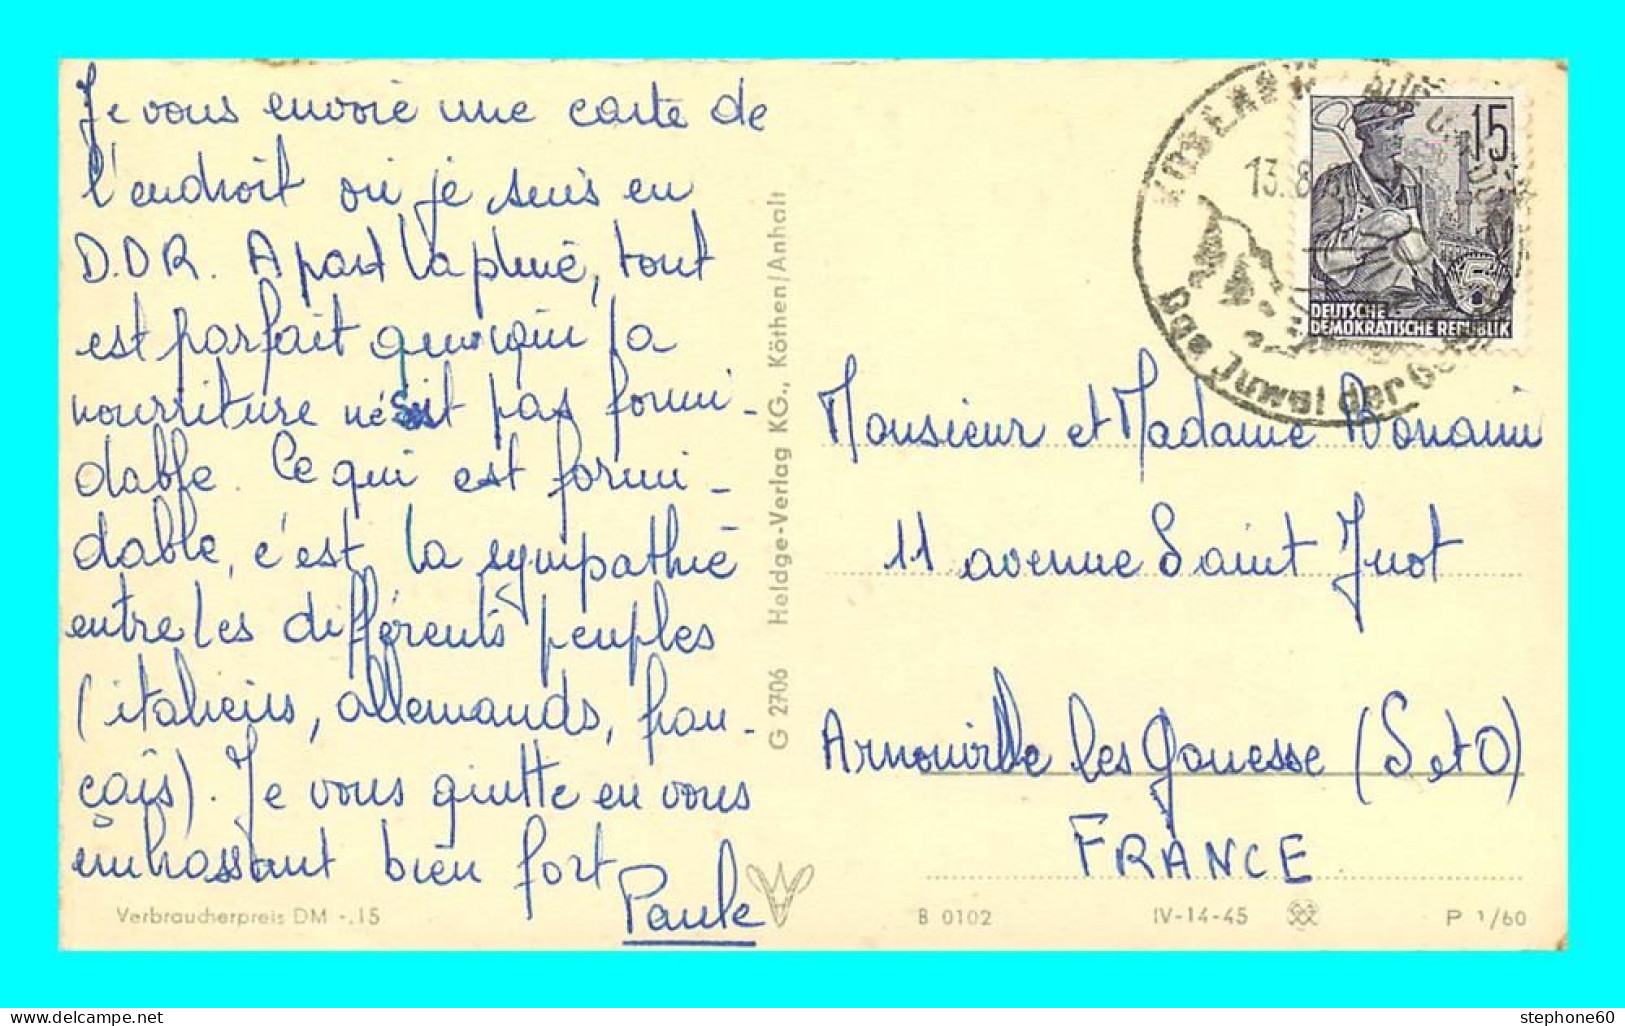 Je vous envoie une carte de
l'endroit où je suis en
D.D.R. A part la pluie, tout
est parfait quoique la
nourriture ne soit pas formi-
dable. Ce qui est formi-
dable, c'est la sympathie
entre les différents peuples
(italiens, allemands, fran-
çais). Je vous quitte en vous
embrassant bien fort
Paule
Verbraucherpreis DM -.15
G 2706 Heldge-Verlag KG., Köthen/Anhalt
13.8.
Das Juwel der
15
5
DEUTSCHE
DEMOKRATISCHE REPUBLIK
Monsieur et Madame Bonamin
11 avenue Saint Just
Arnouville les Gonesse (S et O)
FRANCE
B 0102 IV-14-45 P 1/60
stephone60